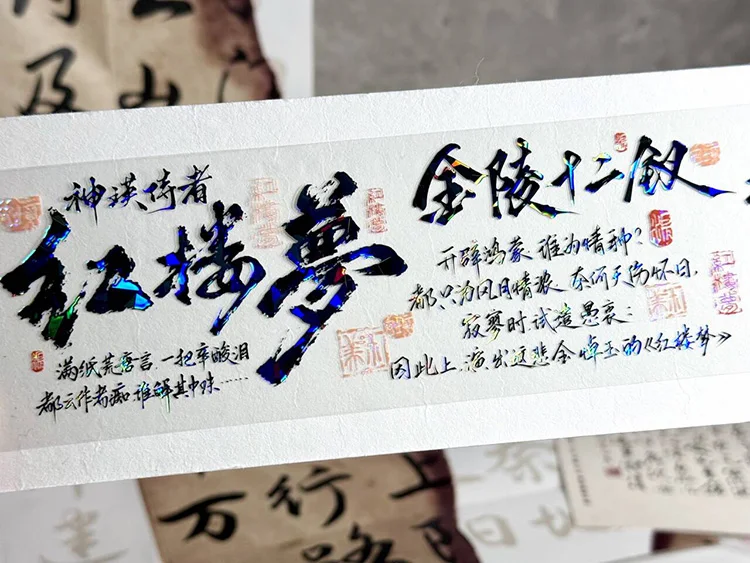 神瑛侍者
红楼夢
满纸荒唐言,一把辛酸泪
都云作者痴,谁解其中味……
金陵十二钗
开辟鸿蒙,谁为情种?
都只为风月情浓,奈何天,伤怀日,
寂寥时,试遣愚衷:
因此上,演出这悲金悼玉的《红楼梦》
及
山
万
行
路
上
阳
秦